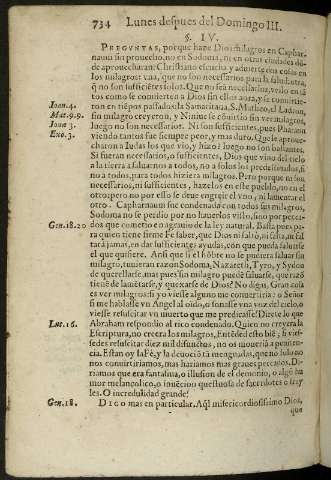 734 Lunes despues del Domingo III.
§. IV.
PREGVNTAS, porque haze Dios milagros en Caphar-
naum sin prouecho, no en Sodoma, ni en otras ciudades dō-
de aprouecharan? Christiano escucha, y aduierte dos cosas en
los milagros: vna, que no son necessarios para la salud: otra,
q̃ no son sufficiẽtes solos. Que no sea necessarios, veslo en tã
tos como se conuierten a Dios sin ellos aora, y se conuirtie-
Ioan.4. ron en tiẽpos passados: la Samaritana, S. Matheo, el Ladron,
Mat.9.9. sin milagro creyeron, y Niniue se cōuirtio sin ver milagro,
Ionæ 3. luego no son necessarios. Ni son sufficientes, pues Pharaon
Exo.3. viendo tantos fue siempre peor, y mas duro. Que le aproue-
charon a Iudas los que vio, y hizo? luego no son bastantes.
Si fueran necessarios, o sufficientes, Dios que vino del cielo
a la tierra a saluarnos a todos, no a solos los predestinados, si
no a todos, para todos hiziera milagros. Pero porque ni son
necessarios, ni sufficientes, hazelos en este pueblo, no en el
otro: pero no por esso se deue engreir el vno, ni lamentar el
otro. Capharnaum fue condenada con todos sus milagros,
Sodoma no se perdio por no hauerlos visto, sino por pecca-
Gen.18.20 dos que cometio en agrauio de la ley natural. Basta pues pa-
ra quien tiene firme Fe saber, que Dios ni faltò, ni falta, ni fal
tarà jamas, en dar sufficientes ayudas, con que pueda saluarse
el que quisiere. Ansi que si el hōbre no se pudiera saluar sin
milagro, tuuieran razon Sodoma, Nazareth, Tyro, y Sydon
de querellarse, mas pues sin milagro puede saluarse, que razō
tiene de lamẽtarse, y quexarse de Dios? No digan, Gran cosa
es ver milagros: si yo viesse alguno me conuertiria: o Señor
si me hablasse vn Angel al oido, o sonasse vna voz del cielo, o
viesse resuscitar vn muerto que me predicasse! Direte lo que
Luc.16. Abraham respondio al rico condenado. Quien no creyere la
Escriptura, no creera los milagros. Entẽded esto biẽ, si vies-
sedes resuscitar diez mil difunctos, no os moueriã a peniten-
cia. Estan oy la Fè, y la deuociō tã menguadas, que no solo no
nos conuirtiriamos, mas hariamos mas graues peccados. Di-
riamos que era fantasma, o illusion de el demonio, o algũ hu
mor melancolico, o inuẽcion questuosa de sacerdotes o fray
les. O incredulidad grande!
Gen.18. DIGO mas en particular. Aq̃l misericordiosissimo Dios,
que